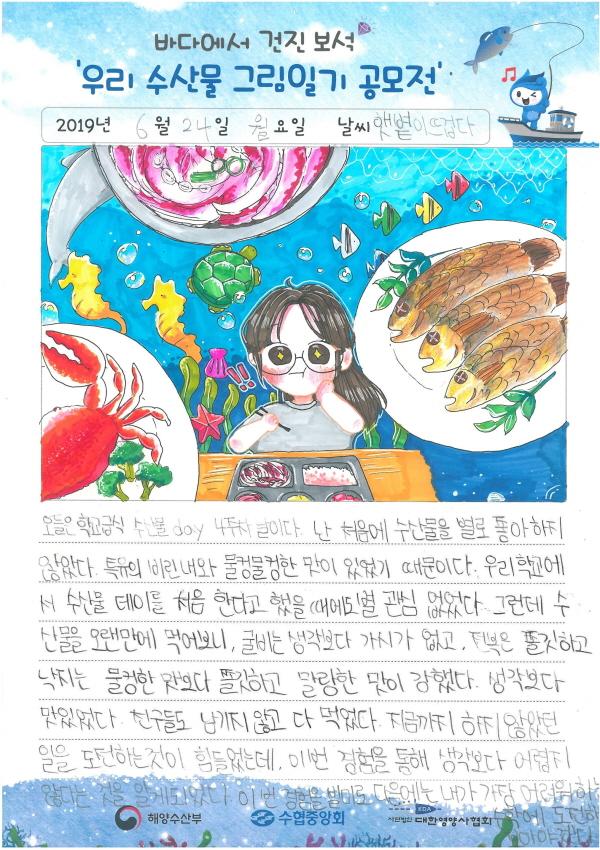 바다에서 건진 보석
'우리 수산물 그림일기 공모전'
2019년 6월 24일 월요일 날씨 햇볕이뜨겁다
!!
오늘은 학교급식 수산물 day 4주차 날이다. 난 처음에 수산물을 별로 좋아하지
않았다. 특유의 비린내와 물컹물컹한 맛이 있었기 때문이다. 우리학교에
서 수산물 데이를 처음 한다고 했을때에도별 관심 없었다. 그런데 수
산물을 오랜만에 먹어보니, 굴비는 생각보다 가시가 없고, 쫄깃하고
낙지는 물컹한 맛보다 쫄깃하고 말랑한 맛이 강했다. 생각보다
맛있었다. 친구들도 남기지 않고 다 먹었다. 지금까지 하지 않았던
일을 도전하는것이 힘들었는데, 이번 경험을 통해 생각보다 어렵지
않다는 것을 알게되었다 이번 경험을 다음에는 내가 가장 어려워하는
수학에 도전하
해양수산부
수협중앙회
사단법인 KDA 대한영양사협회